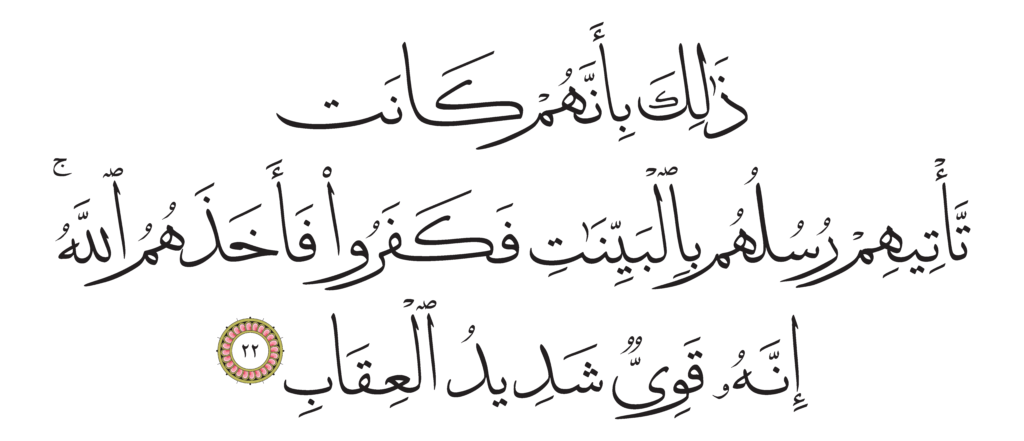 ذَٰلِكَ بِأَنَّهُمْ كَانَت
تَّأْتِيهِمْ رُسُلُهُم بِٱلْبَيِّنَٰتِ فَكَفَرُوا۟ فَأَخَذَهُمُ ٱللَّهُ ۚ
إِنَّهُۥ قَوِىٌّ شَدِيدُ ٱلْعِقَابِ ٢٢